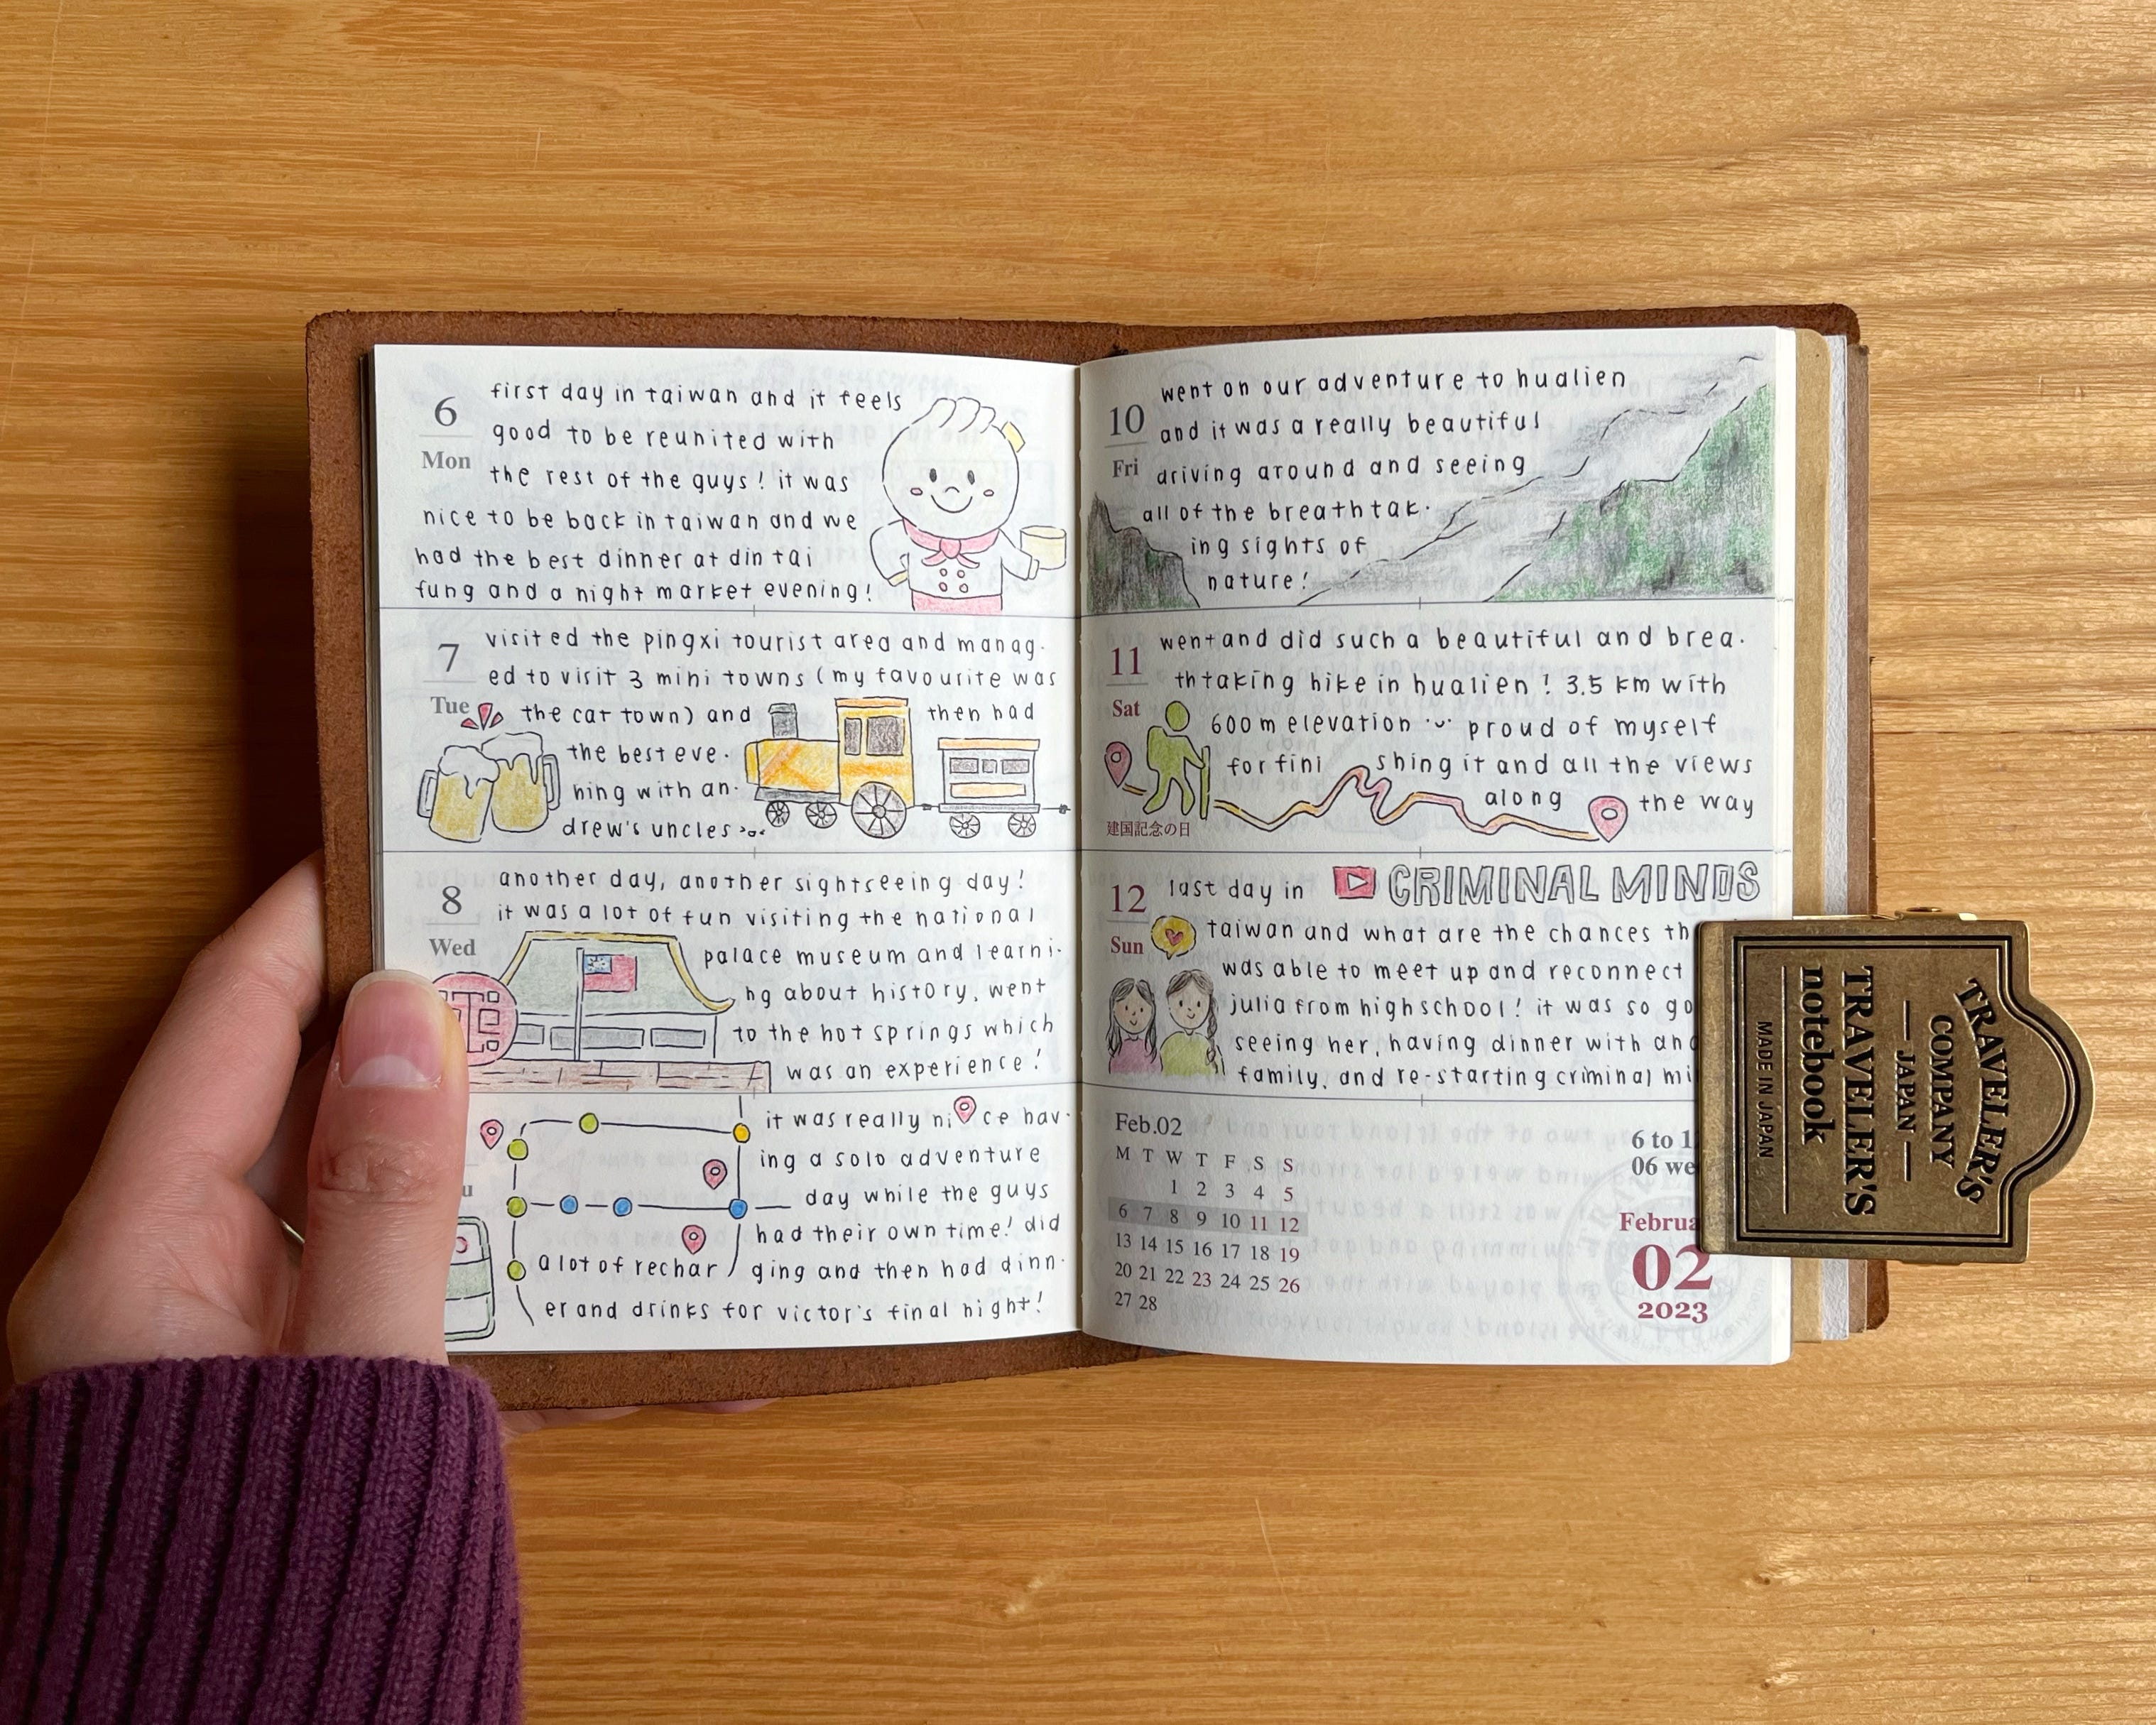 6
Mon
first day in taiwan and it feels
good to be reunited with
the rest of the guys! it was
nice to be back in taiwan and we
had the best dinner at din tai
fung and a night market evening!
7
Tue
visited the pingxi tourist area and manag-
ed to visit 3 mini towns (my favourite was
the cat town) and then had
the best eve-
ning with an-
drew's uncles
8
Wed
another day, another sightseeing day!
it was a lot of fun visiting the national
palace museum and learni-
ng about history, went
to the hot springs which
was an experience!
u
it was really nice hav-
ing a solo adventure
day while the guys
had their own time! did
a lot of rechar/ging and then had dinn-
er and drinks for victor's final night!
10
Fri
went on our adventure to hualien
and it was a really beautiful
driving around and seeing
all of the breathtak-
ing sights of
nature!
11
Sat
建国記念の日
went and did such a beautiful and brea-
thtaking hike in hualien! 3.5 km with
600m elevation proud of myself
for finishing it and all the views
along the way
12
Sun
last day in CRIMINAL MINDS
taiwan and what are the chances th
was able to meet up and reconnect
julia from highschool! it was so go
seeing her, having dinner with and
family, and re-starting criminal mi
Feb.02
M T W T F S S
1 2 3 4 5
6 7 8 9 10 11 12
13 14 15 16 17 18 19
20 21 22 23 24 25 26
27 28
6 to 1
06 we
Februa
02
2023
TRAVELER'S
COMPANY
JAPAN
TRAVELER'S
notebook
MADE IN JAPAN